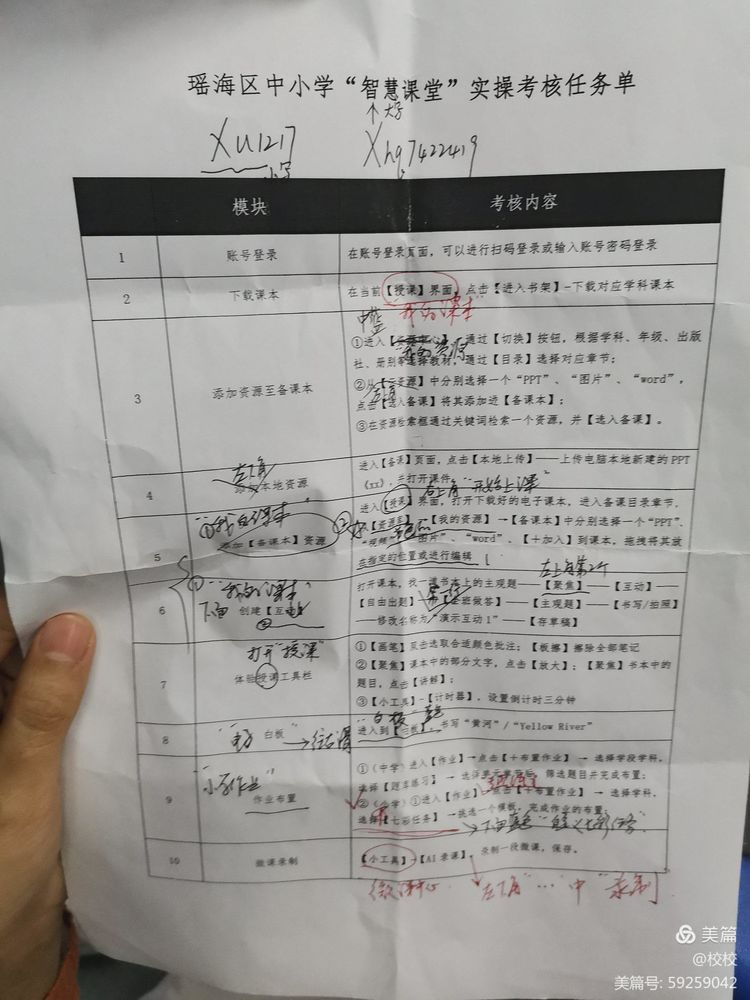 瑶海区中小学“智慧课堂”实操考核任务单
↑大写
Xu1217 Xhq7422419
小写
模块 考核内容
1 账号登录 在账号登录页面，可以进行扫码登录或输入账号密码登录
2 下载课本 在当前【授课】界面，点击【进入书架】-下载对应学科课本
“我的课本”
3 添加资源至备课本
①进入 通过【切换】按钮，根据学科、年级、出版
社、册别等选择教材，通过【目录】选择对应章节；
②从 中分别选择一个“PPT”、“图片”、“word”，
点击【选入备课】将其添加进【备课本】；
③在资源检索框通过关键词检索一个资源，并【选入备课】。
左下角
4 添加本地资源
进入【备课】页面，点击【本地上传】——上传电脑本地新建的PPT
《xx》，并打开课件。
右上角“开始上课”
①“我的课本”
5 添加【备课本】资源
进入【授课】界面，打开下载好的电子课本，进入备课目录章节，
【我的资源】→【备课本】中分别选择一个“PPT”、
“视频”、“图片”、“word”、【+加入】到课本，拖拽将其放
在指定的位置或进行编辑
左上角第2个
①“我的课本”
下面
6 创建【互动】
打开课本，找一道书本上的主观题——【聚焦】——【互动】——
【自由出题】——【全班做答】——【主观题】——【书写/拍照】
——修改名称为“演示互动1”——【存草稿】
打开“授课”
7 体验授课工具栏
①【画笔】双击选取合适颜色批注；【板擦】擦除全部笔记
②【聚焦】课本中的部分文字，点击【放大】；【聚焦】书本中的
题目，点击【讲解】；
③【小工具】-【计时器】，设置倒计时三分钟
“白板”
8 白板 →往右滑
进入到【白板】，书写“黄河”/“Yellow River”
“小学作业”
9 作业布置
①（中学）进入【作业】→点击【+布置作业】→ 选择学段学科，
选择【题库练习】→ 选择单元章节后，筛选题目并完成布置；
②（小学）①进入【作业】→点击【+布置作业】→ 选择学科，
选择【七彩任务】→挑选一个模板，完成作业的布置。
10 微课录制
【小工具】-【AI录课】，录制一段微课，保存。
微课中心 左下角“…”中“录制”
美篇
@校校
美篇号: 59259042